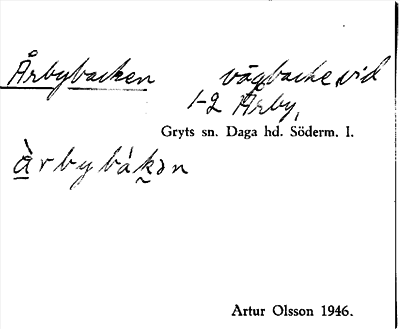 Årbybacken vägbacke vid
1-2 Årby,
Gryts sn. Daga hd. Söderm. l.
å̀rbybákən
Artur Olsson 1946.